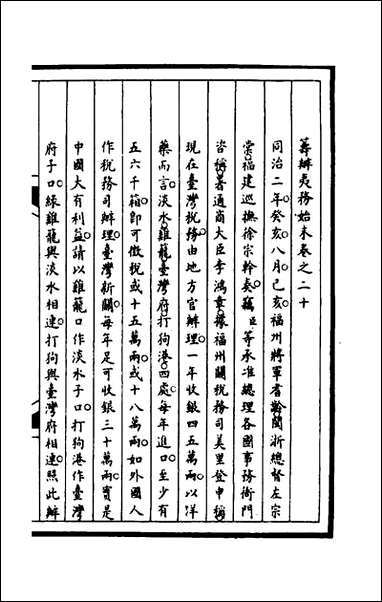 籌辦夷務始末卷之二十
同治二年癸亥八月己亥福州將軍耆齡閩浙總督左宗
棠福建巡撫徐宗幹奏竊臣等承准總理各國事務衙門
咨稱署通商大臣李鴻章據福州關稅務司美里登申稱
現在臺灣稅務由地方官辦理一年收銀四五萬兩以洋
藥而言淡水雞籠臺灣府打狗港四處每年進口至少有
五六千箱卽可徵稅或十五萬兩或十八萬兩如外國人
作稅務司辦理臺灣新關每年足可收銀三十萬兩實是
中國大有利益請以雞籠口作淡水子口打狗港作臺灣
府子口緣雞籠與淡水相連打狗與臺灣府相連照此辦